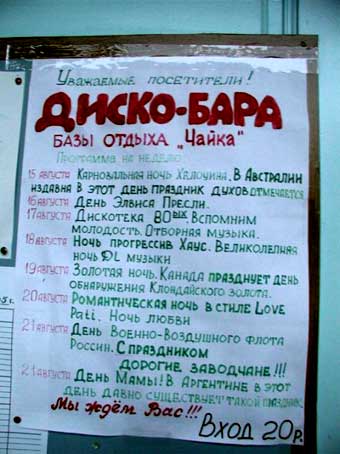 Уважаемые посетители!
ДИСКО-БАРА
БАЗЫ ОТДЫХА „ЧАЙКА"
Программа на неделю:
15 АВГУСТА Карновальная ночь Хэлоуина. В Австралии
издавна в этот день праздник духов отмечается
16 АВГУСТА День Элвиса Пресли.
17 АВГУСТА Дискотека 80ых. Вспомним
молодость. Отборная музыка.
18 АВГУСТА Ночь прогрессив Хаус. Великолепная
ночь DL музыки
19 АВГУСТА Золотая ночь. Канада празднует день
обнаружения Клондайского золота.
20 АВГУСТА Романтическая ночь в стиле Love
Pati. Ночь любви
21 АВГУСТА День Военно-Воздушного флота
России. С праздником
дорогие заводчане!!!
21 АВГУСТА День Мамы! В Аргентине в этот
день давно существует такой праздник.
Мы ждём Вас!!!
Вход 20 р.